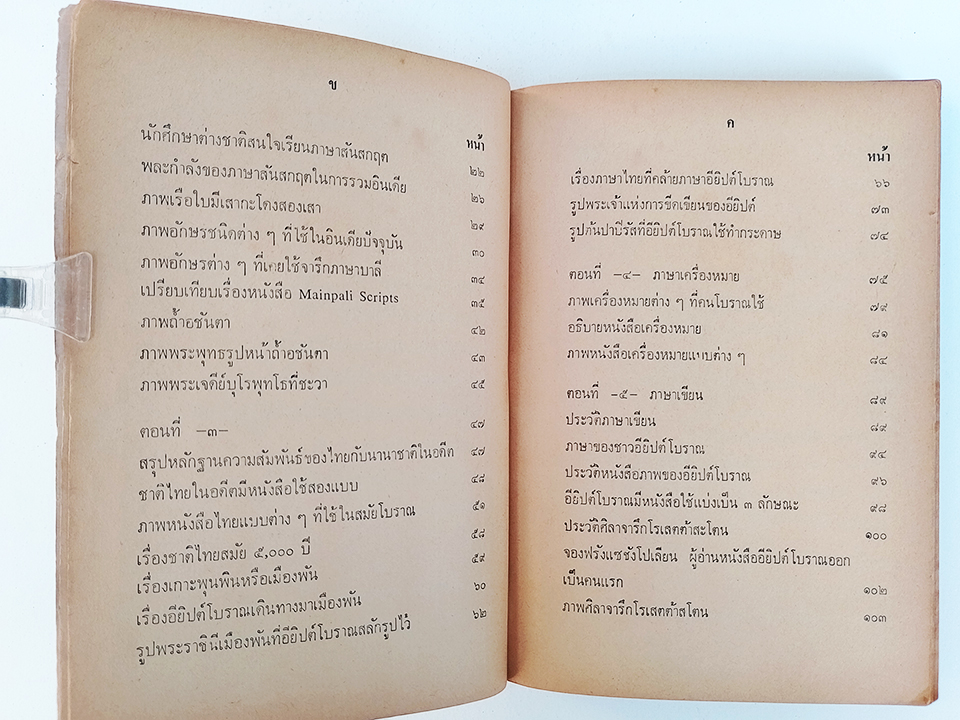 ข
หน้า
นักศึกษาต่างชาติสนใจเรียนภาษาสันสกฤต ๒๒
พละกำลังของภาษาสันสกฤตในการรวมอินเดีย ๒๖
ภาพเรือใบมีเสากะโดงสองเสา ๒๙
ภาพอักษรชนิดต่าง ๆ ที่ใช้ในอินเดียปัจจุบัน ๓๐
ภาพอักษรต่าง ๆ ที่เคยใช้จารึกภาษาบาลี ๓๔
เปรียบเทียบเรื่องหนังสือ Mainpali Scripts ๓๕
ภาพถ้ำอชันตา ๔๒
ภาพพระพุทธรูปหน้าถ้ำอชันตา ๔๓
ภาพพระเจดีย์บุโรพุทโธที่ชะวา ๔๕
ตอนที่ –๓– ๔๗
สรุปหลักฐานความสัมพันธ์ของไทยกับนานาชาติในอดีต ๔๗
ชาติไทยในอดีตมีหนังสือใช้สองแบบ ๔๘
ภาพหนังสือไทยแบบต่าง ๆ ที่ใช้ในสมัยโบราณ ๕๑
เรื่องชาติไทยสมัย ๕,๐๐๐ ปี ๕๘
เรื่องเกาะพุนพินหรือเมืองพัน ๕๙
เรื่องอียิปต์โบราณเดินทางมาเมืองพัน ๖๐
รูปพระราชินีเมืองพันที่อียิปต์โบราณสลักรูปไว้ ๖๒
ค
หน้า
เรื่องภาษาไทยที่คล้ายภาษาอียิปต์โบราณ ๖๖
รูปพระเจ้าแห่งการขีดเขียนของอียิปต์ ๗๓
รูปต้นปาปิรัสที่อียิปต์โบราณใช้ทำกระดาษ ๗๔
ตอนที่ –๔– ภาษาเครื่องหมาย ๗๕
ภาพเครื่องหมายต่าง ๆ ที่คนโบราณใช้ ๗๙
อธิบายหนังสือเครื่องหมาย ๘๑
ภาพหนังสือเครื่องหมายแบบต่าง ๆ ๘๔
ตอนที่ –๕– ภาษาเขียน ๘๙
ประวัติภาษาเขียน ๘๙
ภาษาของชาวอียิปต์โบราณ ๙๔
ประวัติหนังสือภาพของอียิปต์โบราณ ๙๖
อียิปต์โบราณมีหนังสือใช้แบ่งเป็น ๓ ลักษณะ ๙๘
ประวัติศิลาจารึกโรเสตต้าสะโตน ๑๐๐
จองฟรังแซซังโปเลียน ผู้อ่านหนังสืออียิปต์โบราณออก
เป็นคนแรก ๑๐๒
ภาพศิลาจารึกโรเสตต้าสโตน ๑๐๓